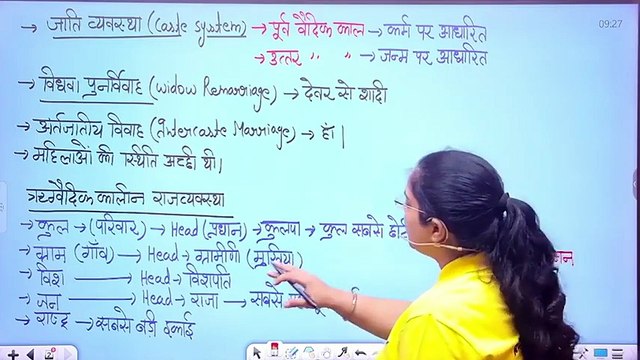 09:27
→ जाति व्यवस्था (Caste System) → पूर्व वैदिक काल → कर्म पर आधारित
→ उत्तर " " → जन्म पर आधारित
→ विधवा पुनर्विवाह (Widow Remarriage) → देवर से शादी
→ अर्तजातीय विवाह (Intercaste Marriage) → हाँ।
→ महिलाओं की स्थिति अच्छी थी।
ऋग्वैदिक कालीन राजव्यवस्था
→ कुल → (परिवार) → Head (प्रधान) → कुलपा → कुल सबसे
→ ग्राम (गाँव) → Head → ग्रामीणी (मुखिया)
→ विश → Head → विशपति
→ जन → Head → राजा → सबसे
→ राष्ट्र → सबसे बड़ी इकाई